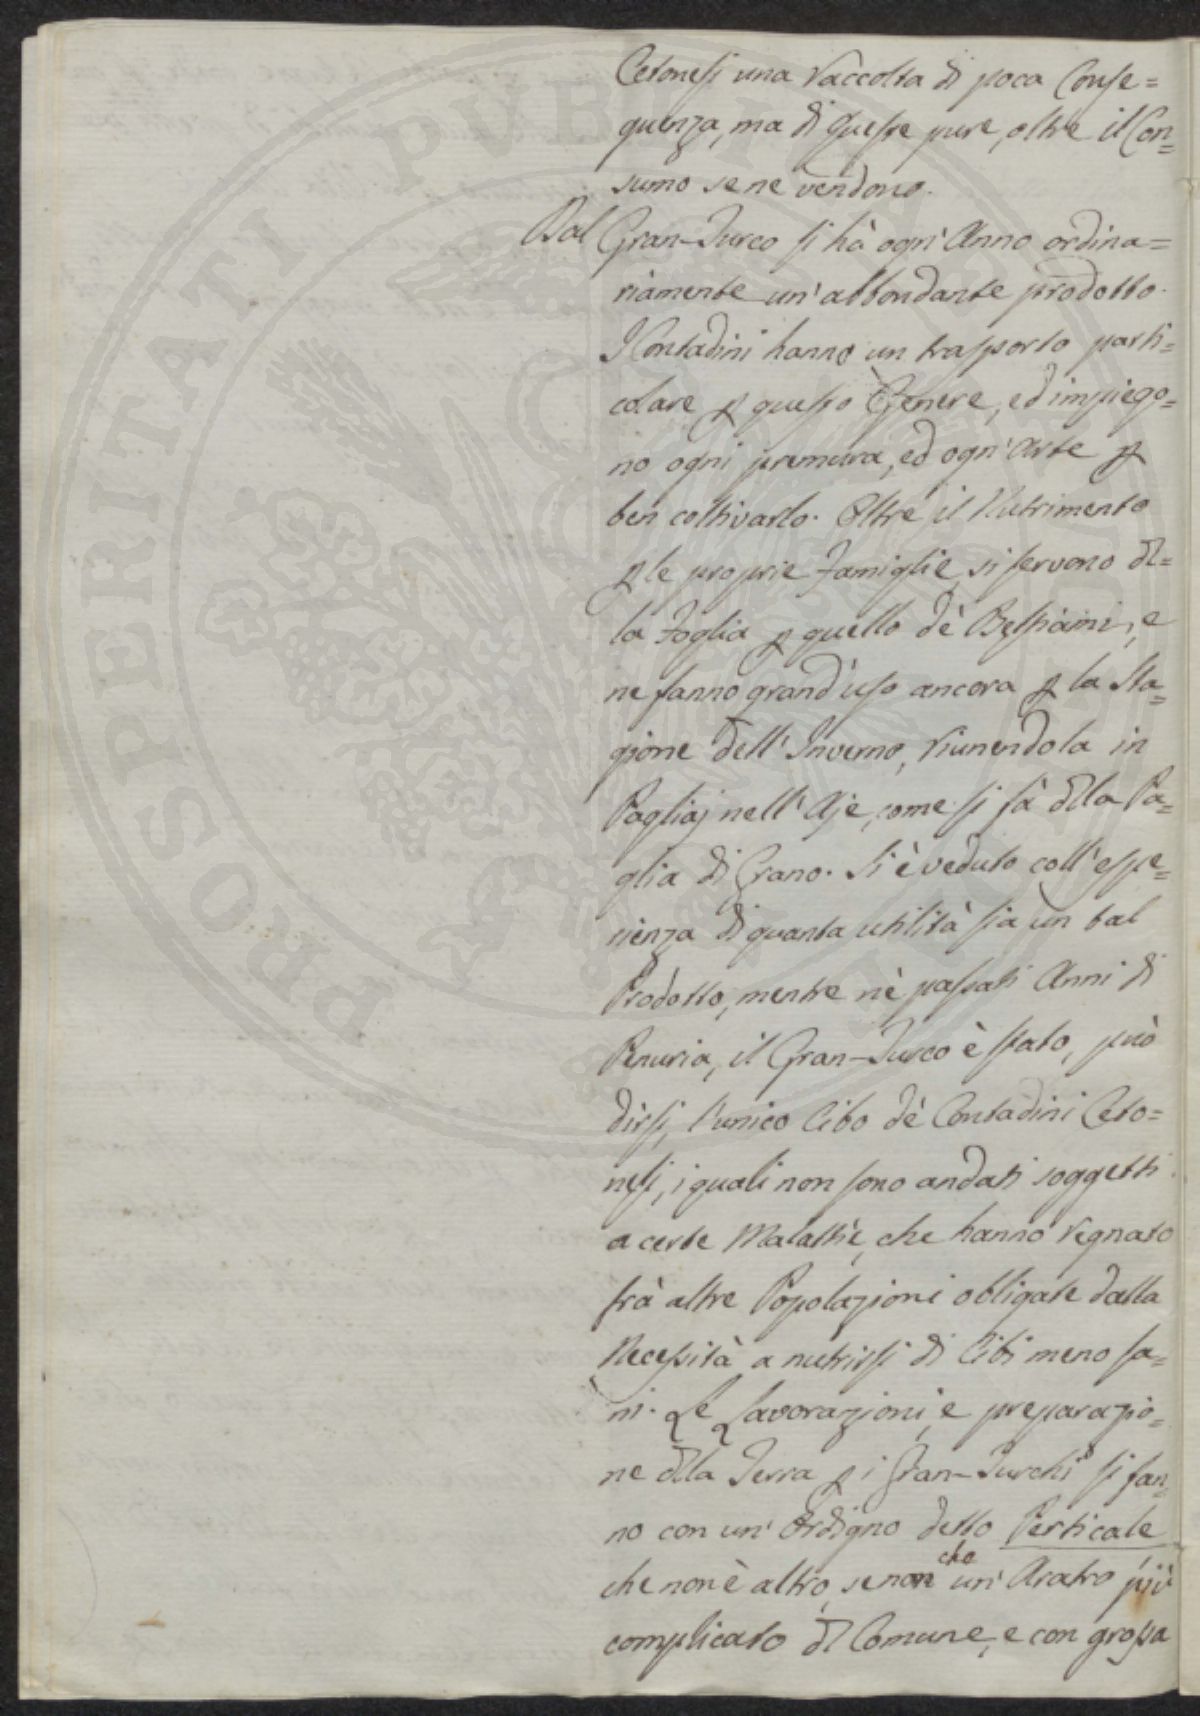 Cetonesi una raccolta di poca Conse=
quenza, ma di queste pure, oltre il Con=
sumo se ne vendono.
Dal Gran-Turco si hà ogn'Anno ordina=
riamente un'abbondante prodotto.
I Contadini hanno un trasporto parti=
colare p questo Genere, ed impiego=
no ogni premura, ed ogn'Arte p
ben coltivarlo. Oltre il Nutrimento
p le proprie Famiglie si servono dl=
la Foglia p quello dè Bestiami, e
ne fanno grand'uso ancora p la Sta=
gione dell'Inverno, riunendola in
Pagliaj nell'Aje, come si fà dlla Pa=
glia di Grano. Si è veduto coll'espe=
rienza di quanta utilità sia un tal
Prodotto, mentre nè passati Anni di
Penuria, il Gran-Turco è stato, può
dirsi, l'unico Cibo dè Contadini Ceto=
nesi, i quali non sono andati soggetti
a certe Malattìe, che hanno regnato
frà altre Popolazioni obligate dalla
Necessità a nutrirsi di Cibi meno sa=
ni. Le Lavorazioni, e preparazio=
ne dlla Terra p i Gran-Turchi si fan=
no con un'Ordigno detto Perticale
che non è altro, se non che un'Aratro più
complicato dl Comune, e con grossa
PROSPERITATI PUBLICAE